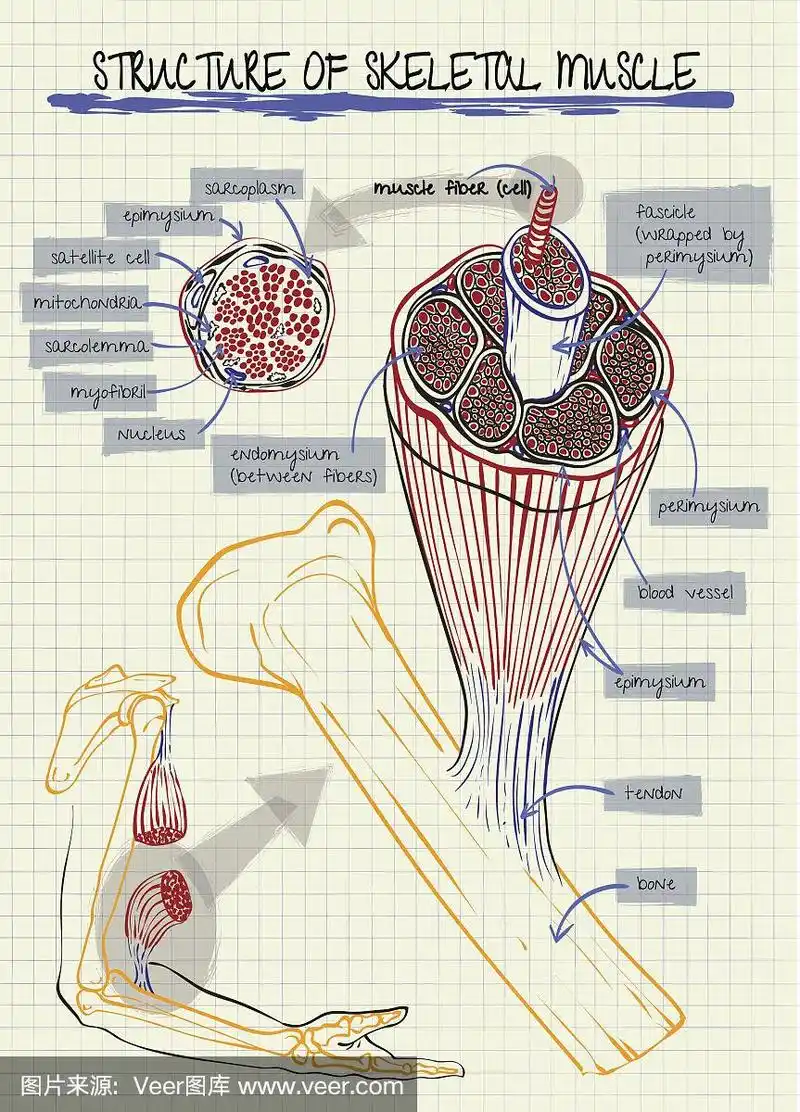 STRUCTURE OF SKELETAL MUSCLE
sarcoplasm
muscle fiber (cell)
epimysium
fascicle
(wrapped by
perimysium)
satellite cell
mitochondria
sarcolemma
myofibril
nucleus
endomysium
(between fibers)
perimysium
blood vessel
epimysium
tendon
bone
图片来源: Veer图库 www.veer.com